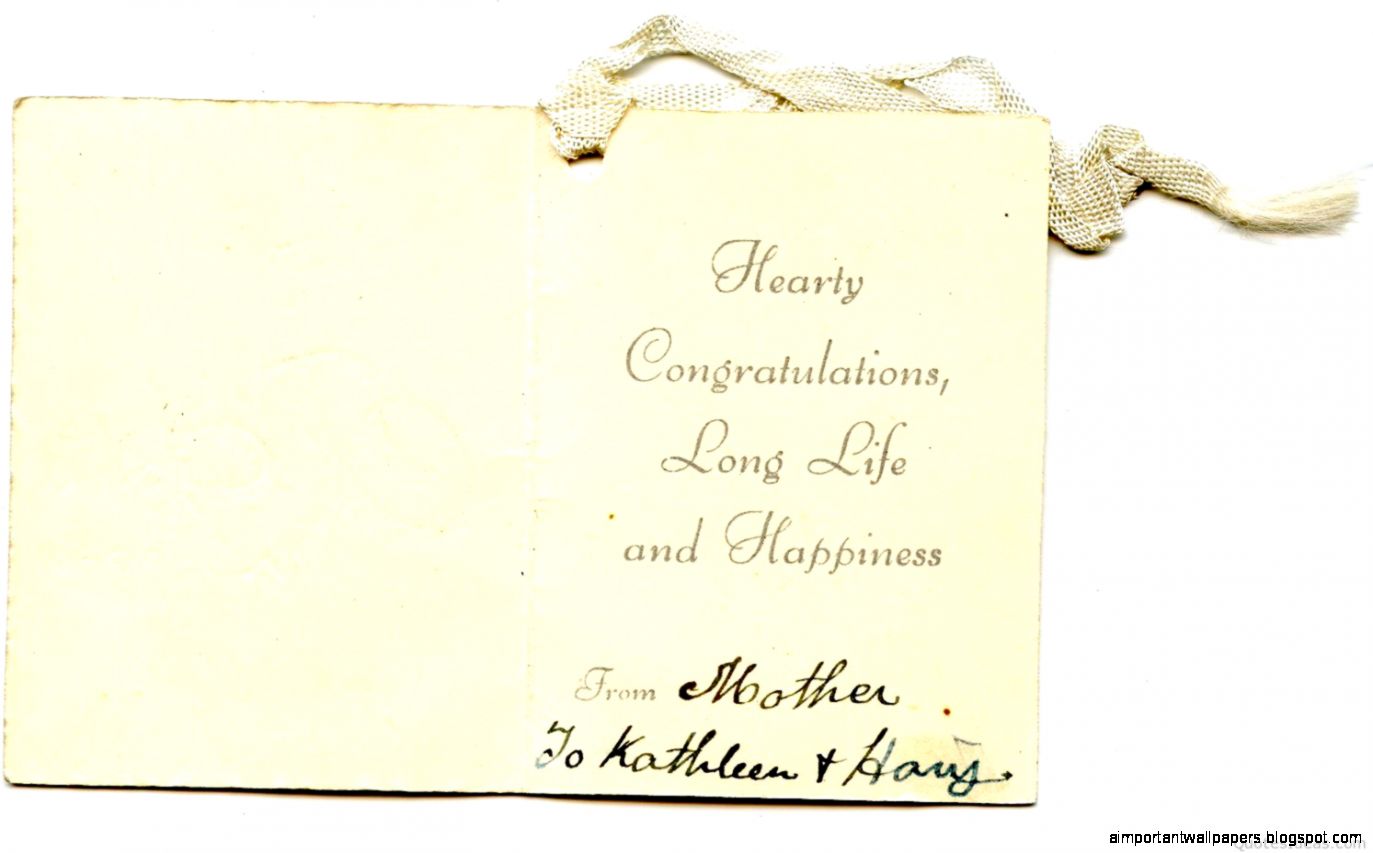 Hearty
Congratulations,
Long Life
and Happiness
From Mother
To Kathleen &
aimportantwallpapers.blogspot.com